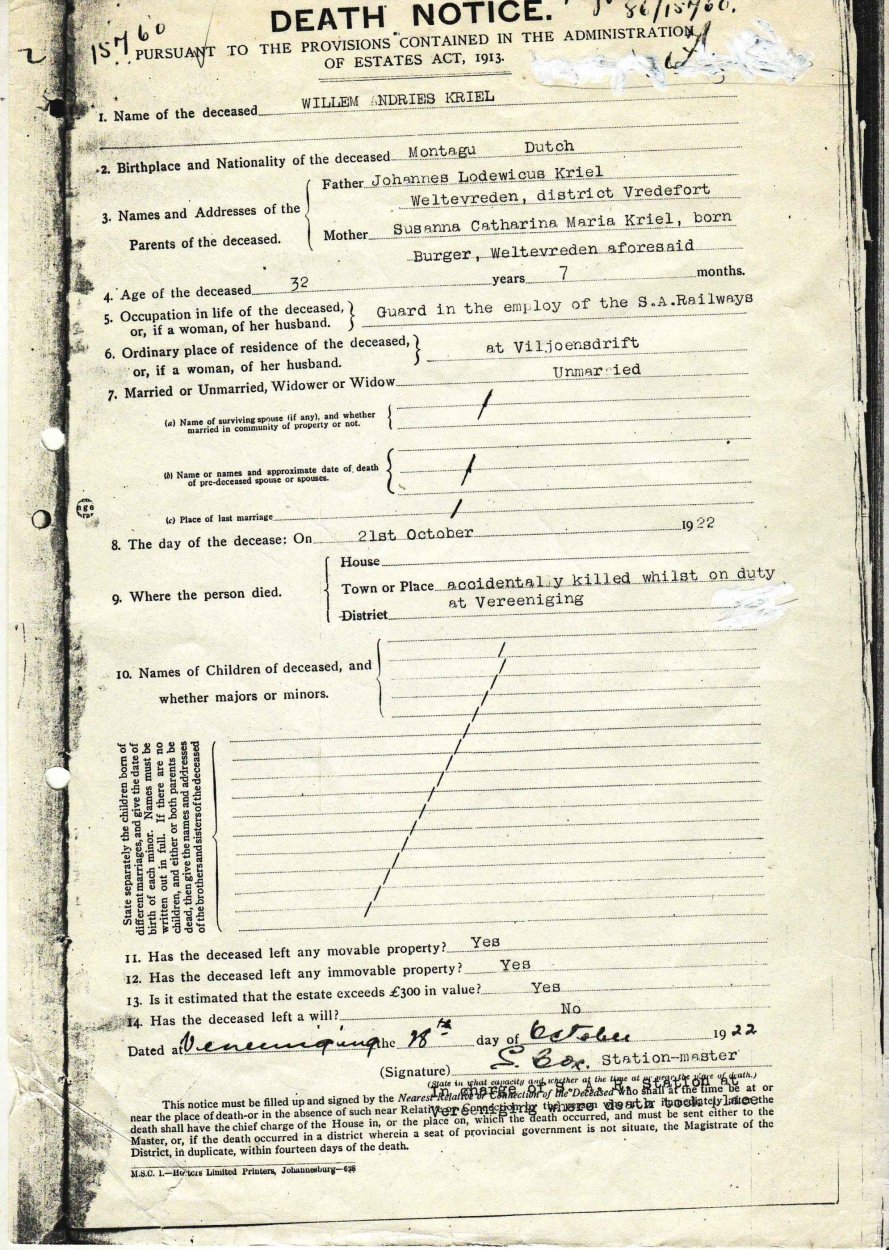 DEATH NOTICE.
86/15760.
2
15760
PURSUANT TO THE PROVISIONS CONTAINED IN THE ADMINISTRATION
OF ESTATES ACT, 1913.
1. Name of the deceased WILLEM ANDRIES KRIEL
2. Birthplace and Nationality of the deceased Montagu Dutch
3. Names and Addresses of the Parents of the deceased.
Father Johannes Lodewicus Kriel
Weltevreden, district Vredefort
Mother Susanna Catharina Maria Kriel, born
Burger, Weltevreden aforesaid
4. Age of the deceased 32 years 7 months.
5. Occupation in life of the deceased,
or, if a woman, of her husband.
Guard in the employ of the S.A.Railways
6. Ordinary place of residence of the deceased,
or, if a woman, of her husband.
at Viljoensdrift
7. Married or Unmarried, Widower or Widow Unmarried
(a) Name of surviving spouse (if any), and whether
married in community of property or not.
(b) Name or names and approximate date of death
of pre-deceased spouse or spouses.
(c) Place of last marriage
8. The day of the decease: On 21st October 1922
9. Where the person died.
House
Town or Place accidentally killed whilst on duty
at Vereeniging
District
10. Names of Children of deceased, and
whether majors or minors.
State separately the children born of
different marriages, and give the date of
birth of each minor. Names must be
written out in full. If there are no
children, and either or both parents be
dead, then give the names and addresses
of the brothers and sisters of the deceased
11. Has the deceased left any movable property? Yes
12. Has the deceased left any immovable property? Yes
13. Is it estimated that the estate exceeds £300 in value? Yes
14. Has the deceased left a will? No
Dated at Vereeniging the 28th day of October 1922
(Signature) S. Cox. Station-master
(State in what capacity and whether at the time at or near the place of death.)
In charge of S. A. R. Station at
Vereeniging where death took place
This notice must be filled up and signed by the Nearest Relative or Connection of the Deceased who shall at the time be at or
near the place of death-or in the absence of such near Relative or Connection by the person who at or immediately after the
death shall have the chief charge of the House in, or the place on, which the death occurred, and must be sent either to the
Master, or, if the death occurred in a district wherein a seat of provincial government is not situate, the Magistrate of the
District, in duplicate, within fourteen days of the death.
M.S.C. 1.—Hortors Limited Printers, Johannesburg—628